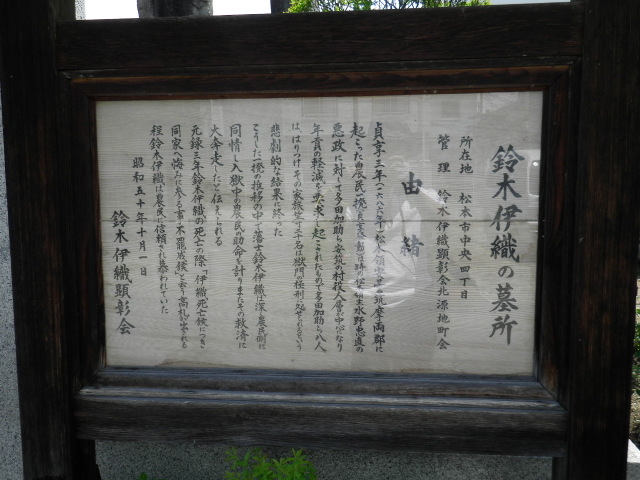 鈴木伊織の墓所
所在地 松本市中央四丁目
管理 鈴木伊織顕彰会北源地町会
由緒
貞享三年(一六八六年)松本領安曇筑摩両郡に
起こった農民一揆(貞享騒動)は時の松本領主水野忠直の
悪政に対して多田加助ら安筑の村役人層が中心になり
年貢の軽減を要求し起こされたもので多田加助ら八人
は、はりつけ、その家族や子弟二十名は獄門の極刑に処せられるという
悲劇的な結果に終った
こうした一揆の推移の中で藩士鈴木伊織は深く農民側に
同情し入獄中の農民の助命を計りまたその救済に
大奔走したと伝えられる
元録三年鈴木伊織の死亡の際「伊織死亡候につき
同家へ悔みに来る事不罷成候」と言う高札が出される
程鈴木伊織は農民に信頼され慕われていた
昭和五十年十月一日
鈴木伊織顕彰会